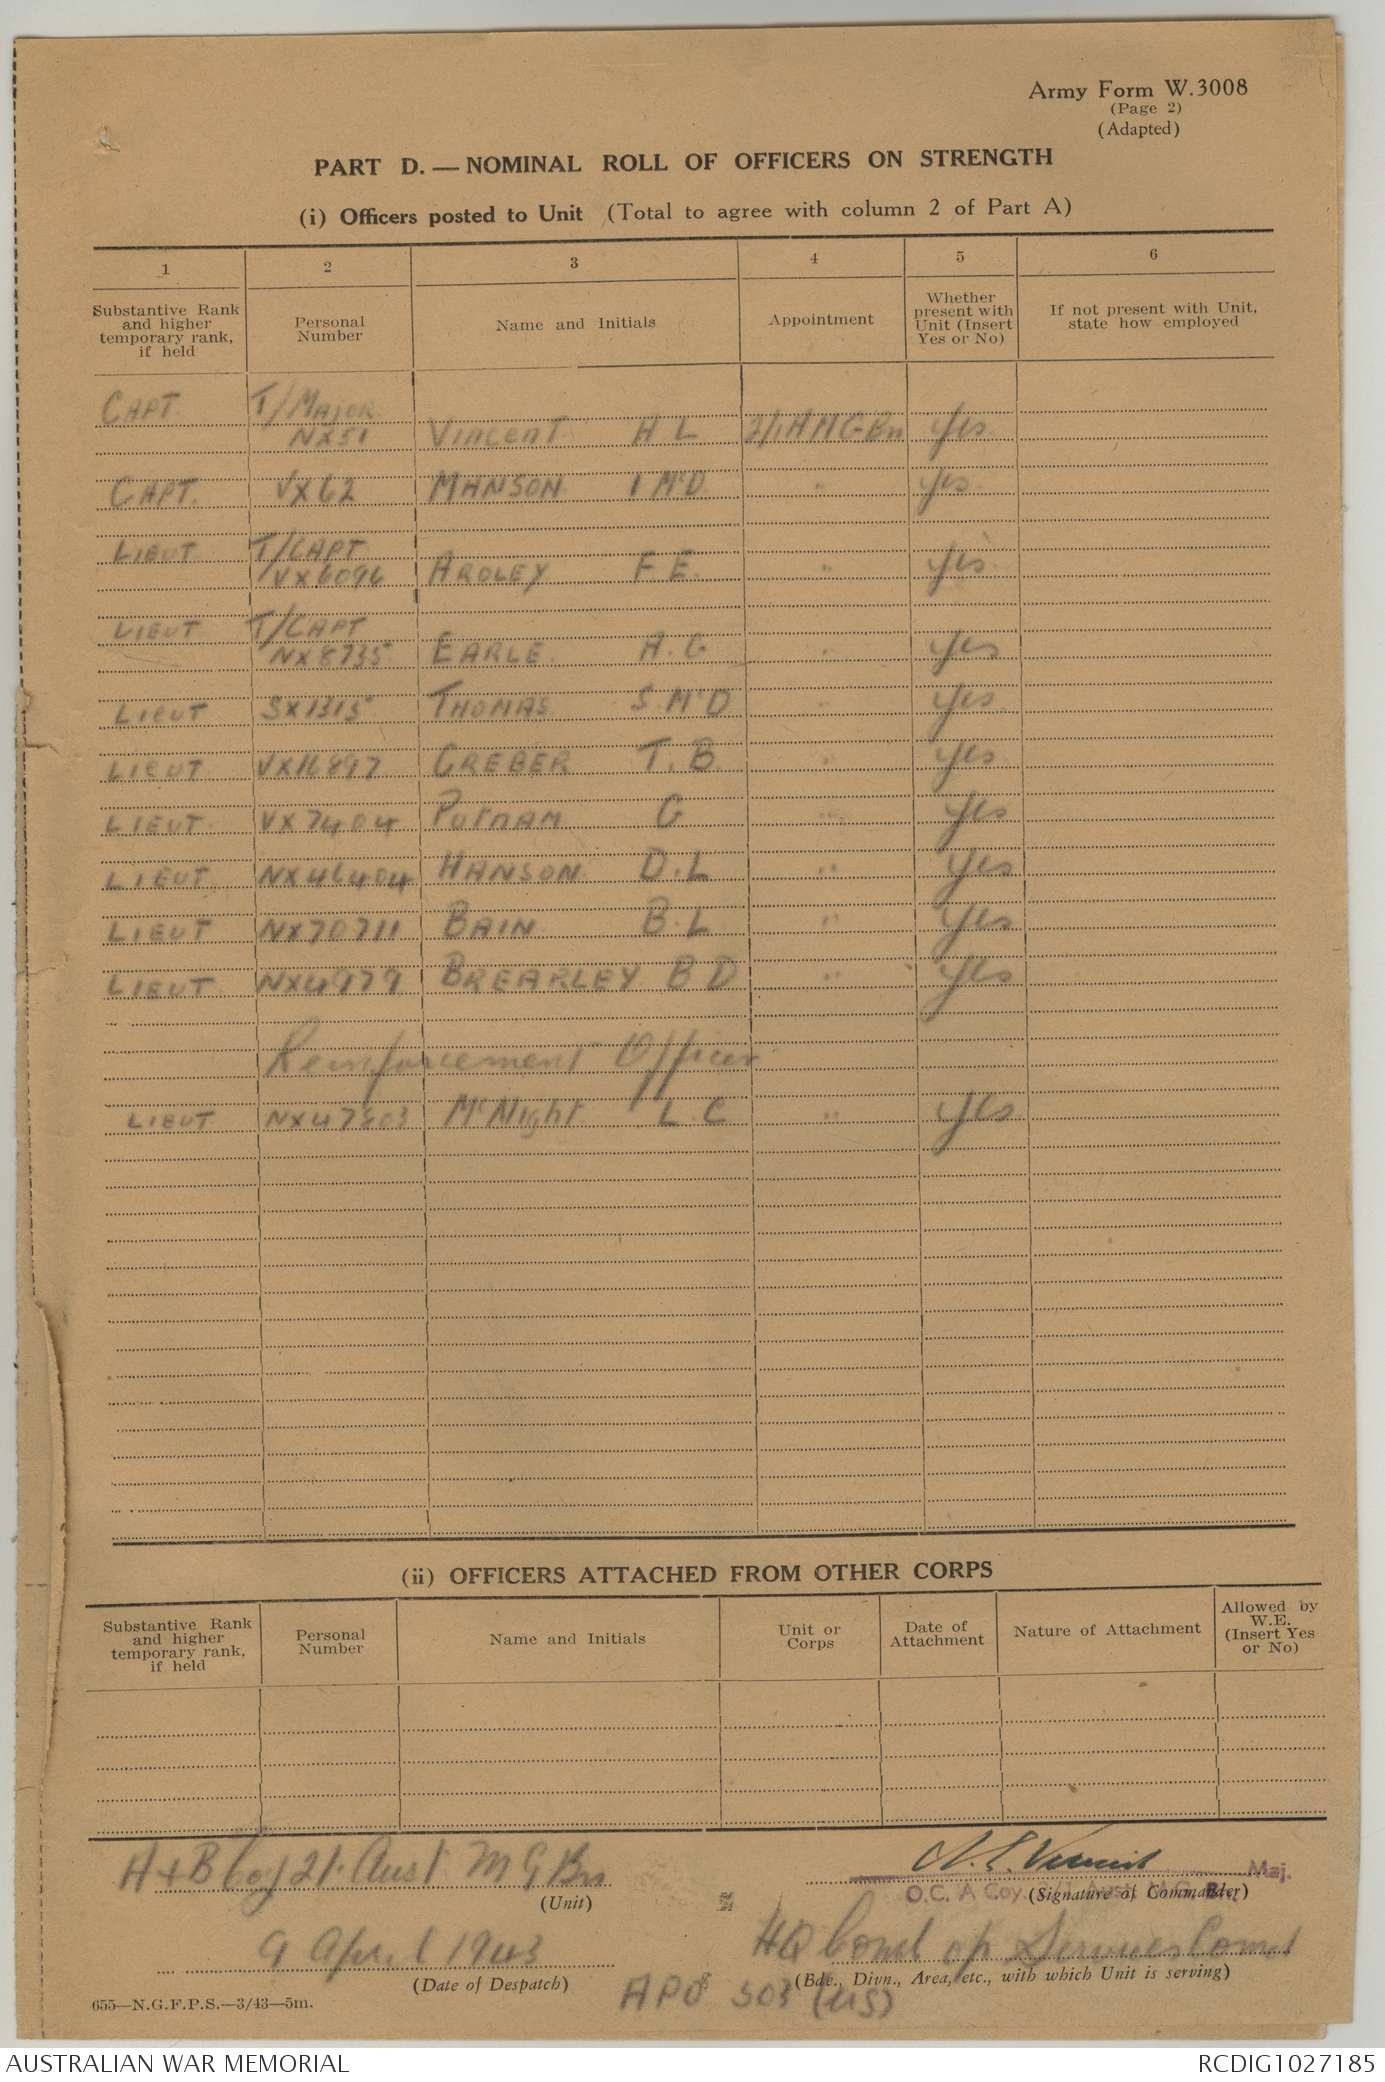 Army Form W.3008
(Page 2)
(Adapted)
PART D.—NOMINAL ROLL OF OFFICERS ON STRENGTH
(i) Officers posted to Unit (Total to agree with column 2 of Part A)
1 2 3 4 5 6
Substantive Rank and higher temporary rank, if held
Personal Number
Name and Initials
Appointment
Whether present with Unit (Insert Yes or No)
If not present with Unit, state how employed
CAPT T/MAJOR
NX51 VINCENT H L 2/1 A M G Bn Yes
CAPT. VX62 MANSON I McD " Yes
LIEUT T/CAPT
VX6096 ARDLEY F E. " Yes
LIEUT T/CAPT
NX8735 EARLE. A. G " Yes
LIEUT SX1315 THOMAS S McD " Yes
LIEUT VX16897 GREBER T. B " Yes
LIEUT VX7404 PUTNAM G " Yes
LIEUT NX46404 HANSON D. L " Yes
LIEUT NX70711 BAIN B. L " Yes
LIEUT NX4979 BREARLEY B D " Yes
Reinforcement Officer
LIEUT McNight L C " Yes
(ii) OFFICERS ATTACHED FROM OTHER CORPS
Substantive Rank and higher temporary rank, if held
Personal Number
Name and Initials
Unit or Corps
Date of Attachment
Nature of Attachment
Allowed by W.E. (Insert Yes or No)
A + B Coy 2/1 Aust M G Bn
(Unit)
H. L. Vincent Maj.
O.C. A Coy. 2/1 Aust. M.G. Bn.
(Signature of Commander)
9 April 1943
(Date of Despatch)
HQ Comd of Services Comd
(Bde., Divn., Area, etc., with which Unit is serving)
APO 503 (US)
655—N.G.F.P.S.—3/43—5m.
AUSTRALIAN WAR MEMORIAL
RCDIG1027185